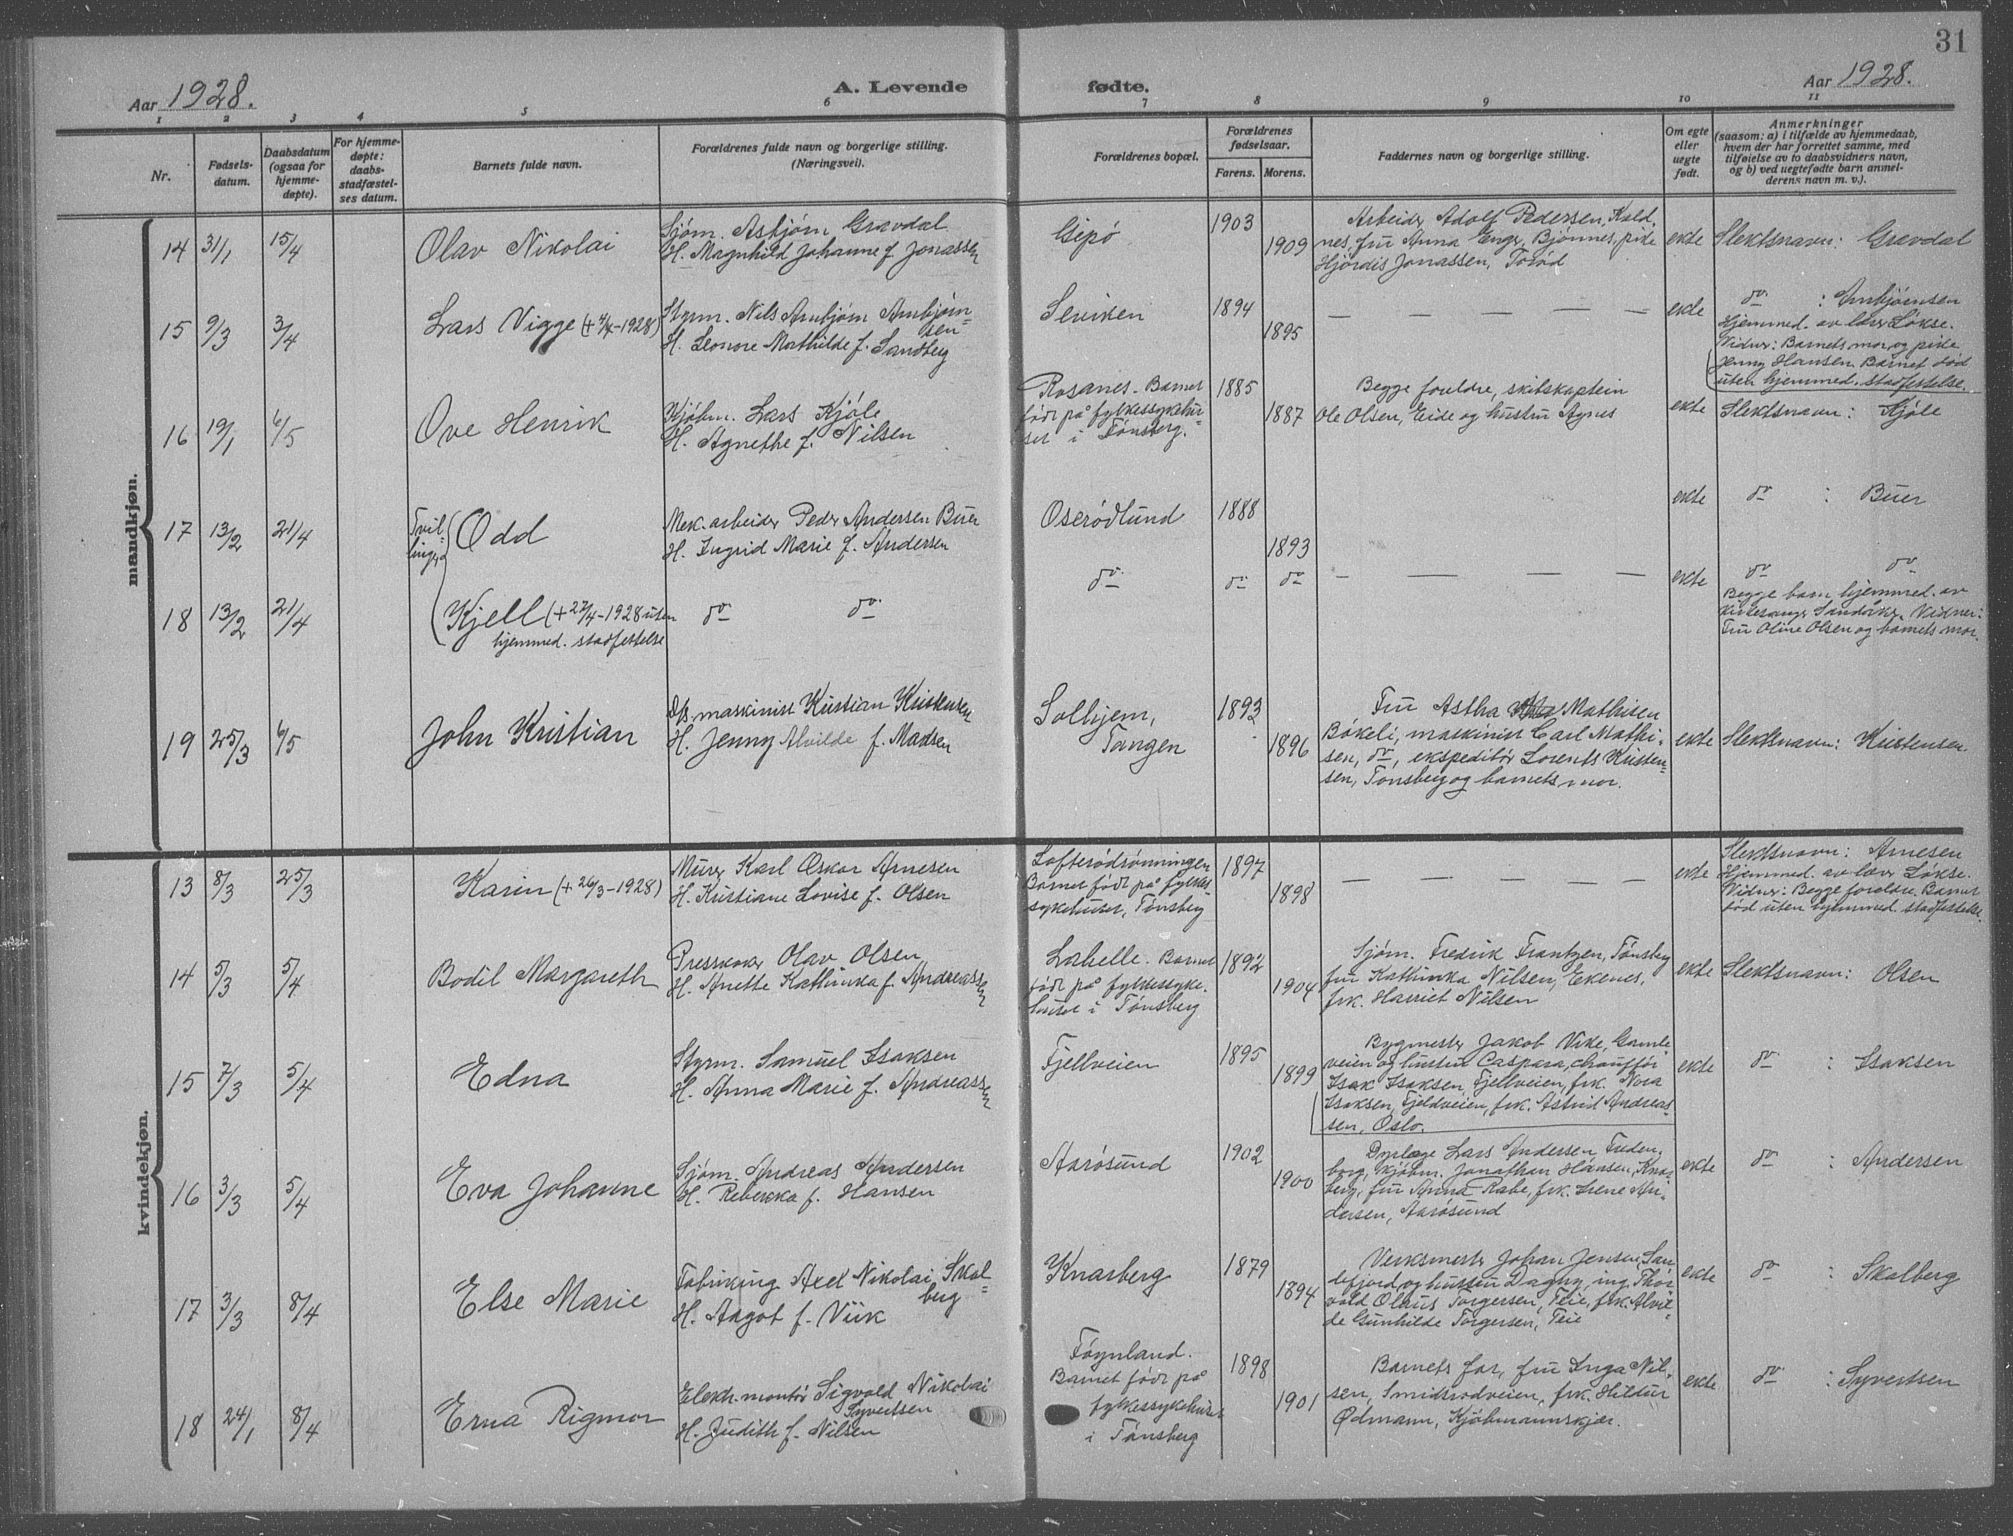 31
Aar 1928.
A. Levende fødte.
Aar 1928.
1 2 3 4 5 6 7 8 9 10 11
Nr.
Fødsels-
datum.
Daabsdatum
(ogsaa for
hjemme-
døpte).
For hjemme-
døpte:
daabs-
stadfæstel-
ses datum.
Barnets fulde navn.
Forældrenes fulde navn og borgerlige stilling.
(Næringsvei).
Forældrenes bopæl.
Forældrenes
fødselsaar.
Farens. Morens.
Faddernes navn og borgerlige stilling.
Om egte
eller
uegte
født.
Anmerkninger
(saasom: a) i tilfælde av hjemmedaab,
hvem der har forrettet samme, med
tilføielse av to daabsvidners navn,
og b) ved uegtefødte barn anmel-
derens navn m. v.).
mandkjøn.
14 31/1 15/4 Olav Nikolai
Sjøm. Asbjørn Gravdal
H. Magnhild Johanne f. Jonassen
Gipø
1903
1909
Arbeider Adolf Pedersen, Kald-
nes, fru Anna Enger, Bjønnes, pike
Hjørdis Jonassen, Torød
ekte
Slektsnavn: Gravdal
15 9/3 3/4 Lars Vigge (+ 4/4-1928)
Styrm. Nils Arnbjørn Arnbjørn-
sen
H. Leonore Mathilde f. Sandberg
Seviken
1894
1895
— — — — —
ekte
do : Arnbjørnsen
Hjemmed. av lærer Løkse.
Vidner: Barnets mor og pike
Jenny Hansen. Barnet død
uten hjemmed. stadfestelse.
16 19/1 6/5 Ove Henrik
Kjøbm. Lars Kjøle
H. Agnethe f. Nilsen
Rosanes. Barnet
født på fylkessykehu-
set i Tønsberg.
1885
1887
Begge foreldre, skibskaptein
Ole Olsen, Eide og hustru Agnes
ekte
Slektsnavn: Kjøle
17 13/2 21/4 Tvil-
linger Odd
Mek. arbeider Peder Andersen Buer
H. Ingrid Marie f. Andersen
Oserødlund
1888
1893
ekte
do : Buer
18 13/2 21/4 Kjell (+ 27/4-1928 uten
hjemmed. stadfestelse
do do
do
do do
— — — — —
ekte
do do
Begge barn hjemmed. av
kirkesanger Sandåker. Vidner:
Fru Oline Olsen og barnets mor.
19 25/3 6/5 John Kristian
D/s. maskinist Kristian Kristensen
H. Jenny Alvilde f. Madsen
Solhjem,
Tangen
1893
1896
Fru Astha Mathisen
Bøkeli, maskinist Carl Mathi-
sen, do, ekspeditør Lorents Kristen-
sen, Tønsberg og barnets mor.
ekte
Slektsnavn: Kristensen
kvindekjøn.
13 8/3 25/3 Karin (+ 26/3-1928)
Murer Karl Oskar Arnesen
H. Kristiane Lovise f. Olsen
Lofterødrønningen
Barnet født på fylkes-
sykehuset, Tønsberg
1897
1898
— — — — —
ekte
Slektsnavn: Arnesen
Hjemmed. av lærer Løkse.
Vidner: Begge foreldre. Barnet
død uten hjemmed. stadfestelse.
14 5/3 5/4 Bodil Margareth
Presskoker Olav Olsen
H. Anette Kathinka f. Andreassen
Labelle. Barnet
født på fylkessyke-
huset i Tønsberg
1892
1904
Sjøm. Fredrik Frantzen, Tønsberg
fru Kathinka Nilsen, Ekenes,
frk. Harriet Nilsen
ekte
Slektsnavn: Olsen
15 7/3 5/4 Edna
Styrm. Samuel Isaksen
H. Anna Marie f. Andreassen
Fjellveien
1895
1899
Bygmester Jakob Vike, Gamle-
veien og hustru Caspara, chauffør
Isak Isaksen, Fjellveien, frk. Nora
Isaksen, Fjeldveien, frk. Astrid Andreas-
sen, Oslo.
ekte
do : Isaksen
16 3/3 5/4 Eva Johanne
Sjøm. Andreas Andersen
H. Rebekka f. Hansen
Aarøsund
1902
1900
Lars Andersen,
borg, kjøbm. Jonathan Hansen, Knar-
berg, fru Anna Rabe, frk. Irene An-
dersen, Aarøsund
ekte
do : Andersen
17 3/3 8/4 Else Marie
Fabriking Axel Nikolai Skal-
berg
H. Aagot f. Viik
Knarberg
1879
1894
Verksmester Johan Jensen, San-
defjord, og hustru Dagny, ing. Thor-
vald Olaus Torgersen, Teie, frk. Alvil-
de Gunhilde Torgersen, Teie
ekte
do : Skalberg
18 24/1 8/4 Erna Rigmor
Elektr. montør Sigvald Nikolai
Syvertsen
H. Judith f. Nilsen
Føynland.
Barnet født på
fylkessykehuset
i Tønsberg
1898
1901
Barnets far, fru Inga Nil-
sen, Smidsrødveien, frk. Hildur
Ødmann, Kjøbmannskjær.
ekte
do : Syvertsen